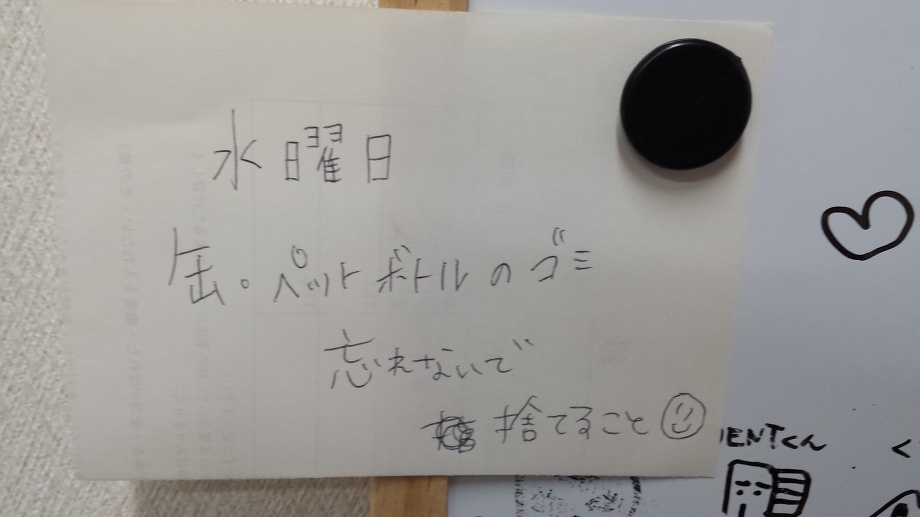 水曜日
缶。ペットボトルのゴミ
忘れないで
捨てること
ENTくん
く